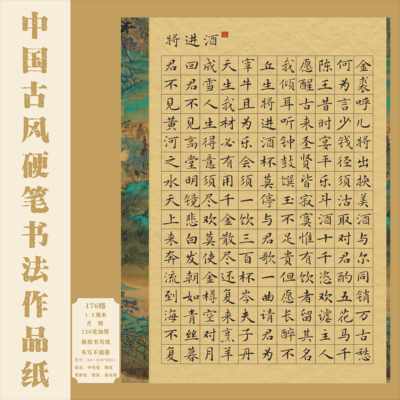 中国古风硬笔书法作品纸
将进酒
君不见黄河之水天上来奔流到海不复
回君不见高堂明镜悲白发朝如青丝暮
成雪人生得意须尽欢莫使金樽空对月
天生我材必有用千金散尽还复来烹羊
宰牛且为乐会须一饮三百杯岑夫子丹
丘生将进酒杯莫停与君歌一曲请君为
我倾耳听钟鼓馔玉不足贵但愿长醉不
愿醒古来圣贤皆寂寞惟有饮者留其名
陈王昔时宴平乐斗酒十千恣欢谑主人
何为言少钱径须沽取对君酌五花马千
金裘呼儿将出换美酒与尔同销万古愁
176格
1.5厘米
方格
120克加厚
书写不洇墨